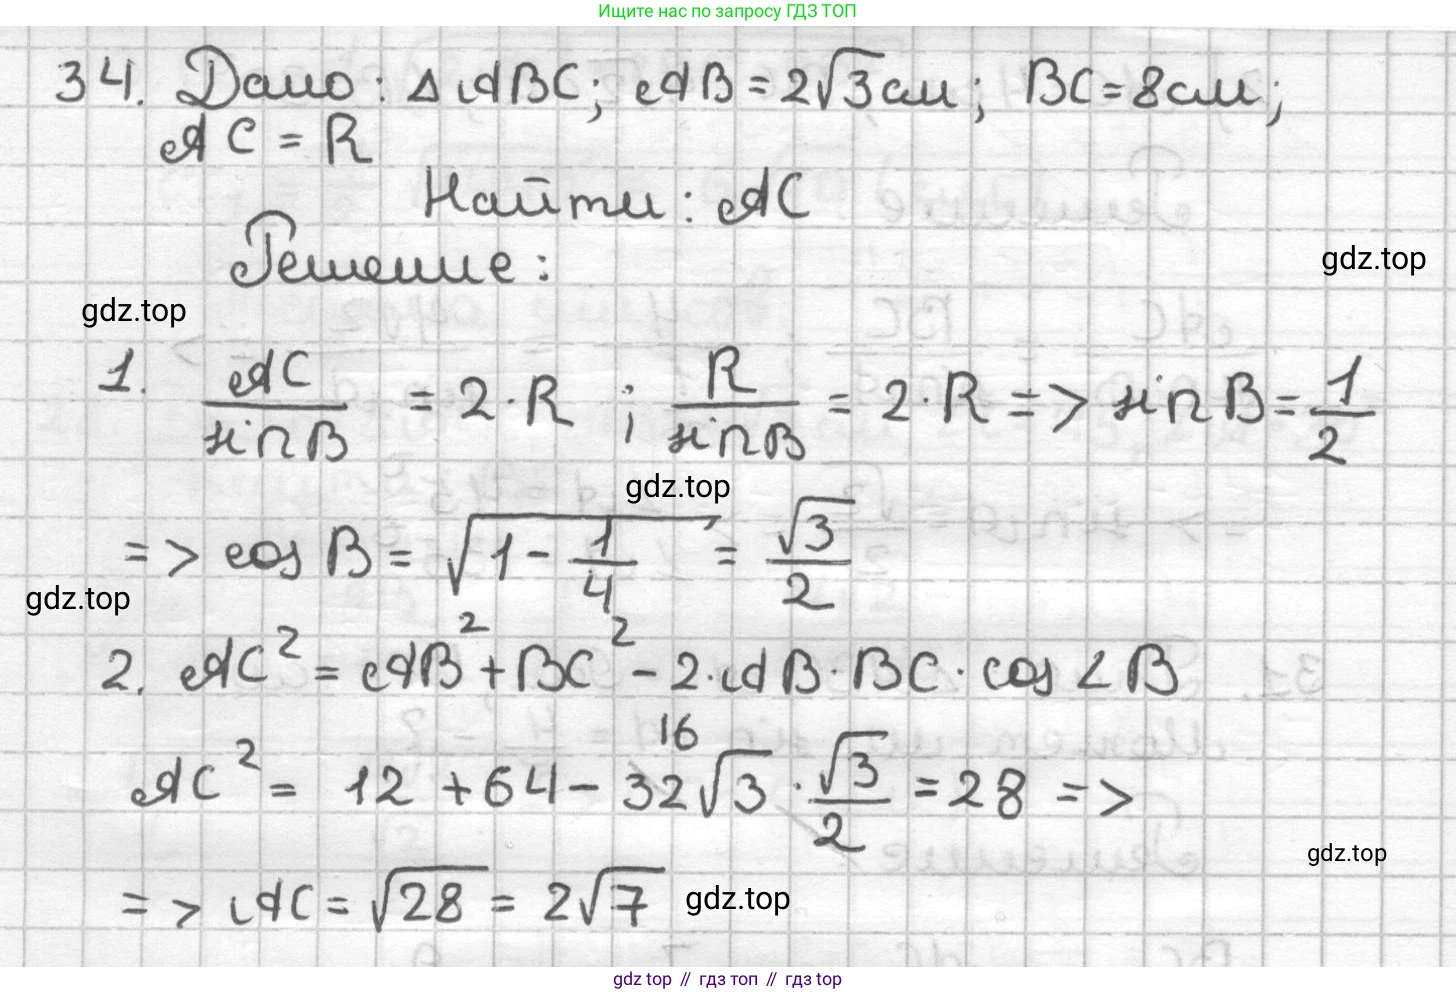 Ищите нас по запросу ГДЗ ТОП
34. Дано: Δ ABC; AB = 2√3 см; BC = 8 см;
AC = R
Найти: AC
Решение:
gdz.top
gdz.top
1. AC/sin B = 2·R ; R/sin B = 2·R => sin B = 1/2
gdz.top
=> cos B = √(1 - 1/4) = √3/2
gdz.top
2. AC² = AB² + BC² - 2·AB·BC·cos∠B
16
AC² = 12 + 64 - 32√3 · √3/2 = 28 =>
gdz.top
=> AC = √28 = 2√7
gdz.top
gdz top // гдз топ // gdz top